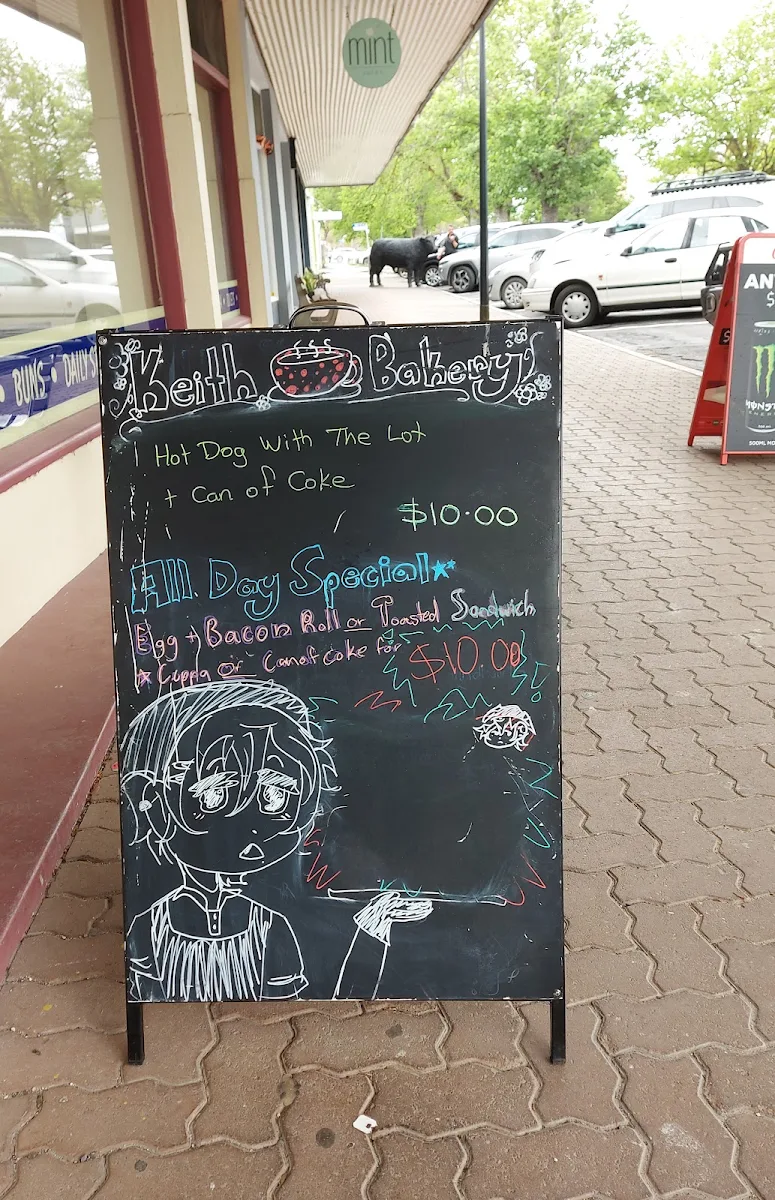 mint
BUNS • DAILY S
Keith Bakery
Hot Dog With The Lot
+ Can of Coke
$10.00
All Day Special
Egg + Bacon Roll or Toasted Sandwich
Cuppa or Can of Coke for $10.00
AN
MONST
500ML MO